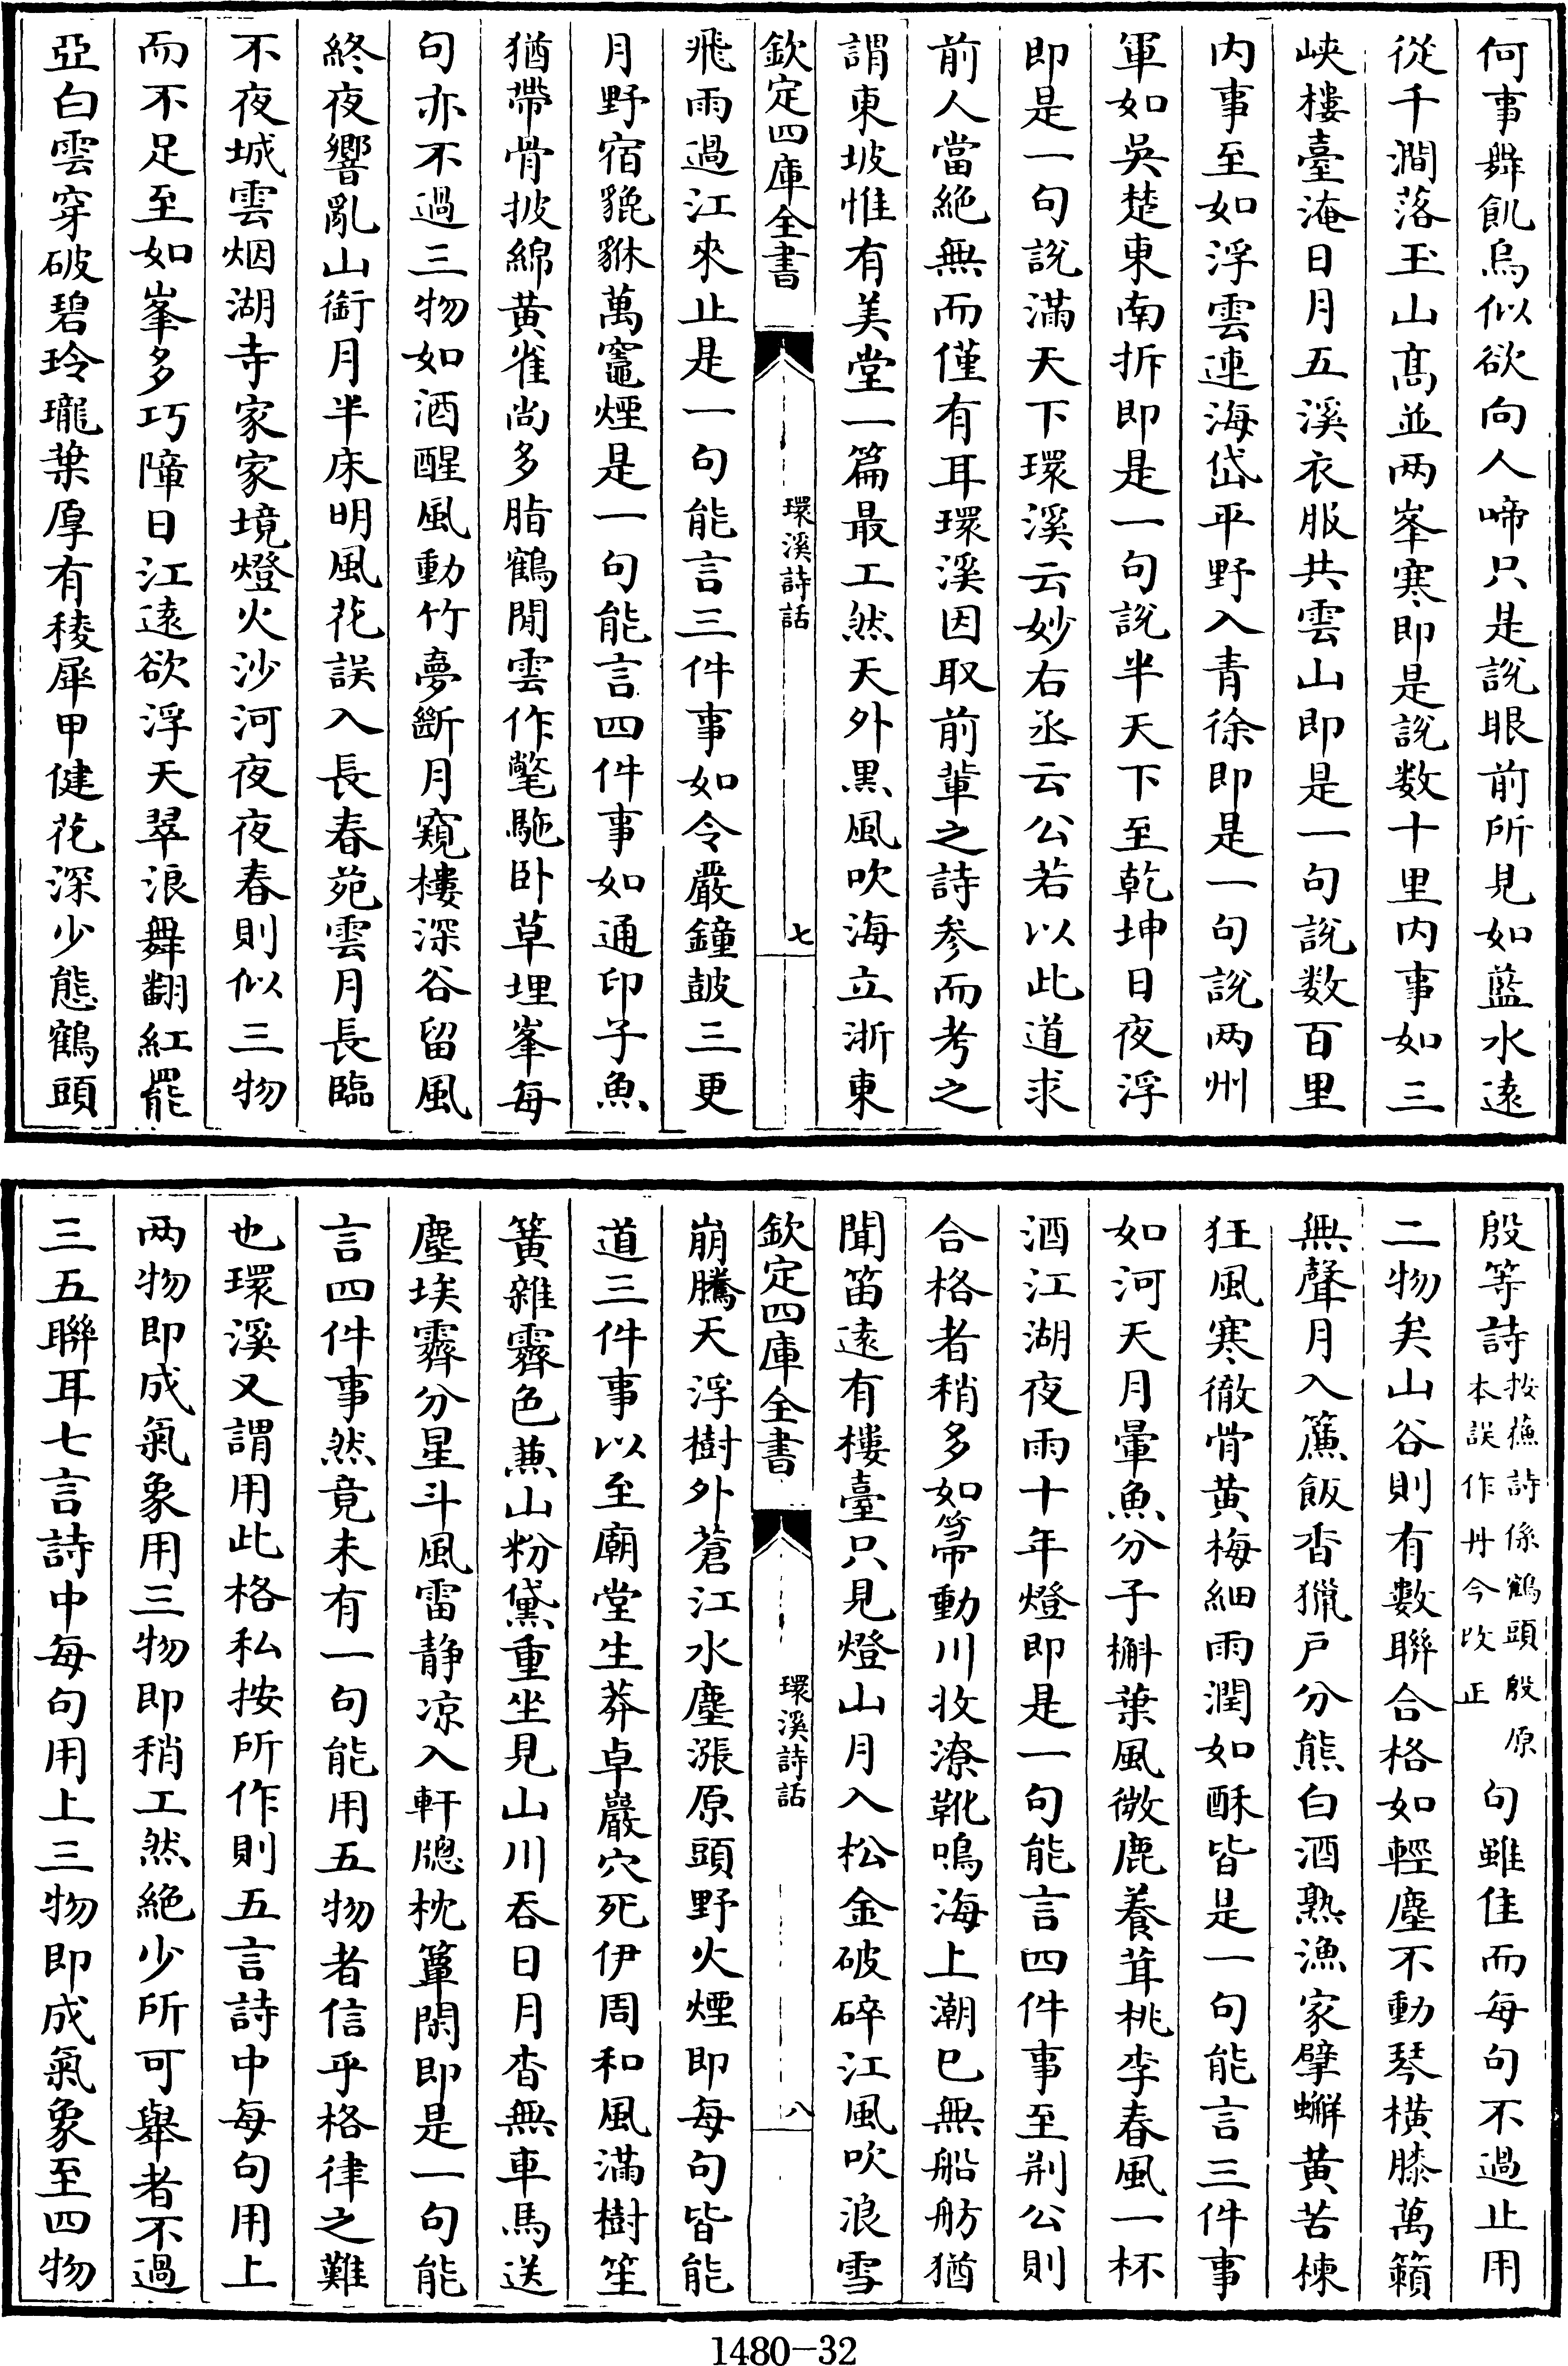 何事舞飢烏似欲向人啼只是說眼前所見如藍水逺
從千澗落玉山髙並两峯寒即是說数十里内事如三
峽樓臺淹日月五溪衣服共雲山即是一句說数百里
内事至如浮雲連海岱平野入青徐即是一句說两州
軍如吳楚東南拆即是一句說半天下至乾坤日夜浮
即是一句說滿天下環溪云妙右丞云公若以此道求
前人當絶無而僅有耳環溪因取前軰之詩参而考之
謂東坡惟有美堂一篇最工然天外黒風吹海立浙東
欽定四庫全書
環溪詩話
七
飛雨過江來止是一句能言三件事如令嚴鐘皷三更
月野宿貔貅萬竈煙是一句能言四件事如通印子魚
猶帶骨披綿黄雀尚多脂鶴閒雲作氅駞卧草埋峯每
句亦不過三物如酒醒風動竹夢斷月窺樓深谷留風
終夜響亂山銜月半床明風花誤入長春苑雲月長臨
不夜城雲烟湖寺家家境燈火沙河夜夜春則似三物
而不足至如峯多巧障日江逺欲浮天翠浪舞翻紅罷
亞白雲穿破碧玲瓏葉厚有稜犀甲健花深少態鶴頭
殷等詩
按蘓詩係鶴頭殷原
本誤作丹今改正
句雖佳而每句不過止用
二物矣山谷則有數聯合格如輕塵不動琴橫膝萬籟
無聲月入簾飯香獵户分熊白酒熟漁家擘蠏黄苦楝
狂風寒徹骨黄梅細雨潤如酥皆是一句能言三件事
如河天月暈魚分子槲葉風微鹿養茸桃李春風一杯
酒江湖夜雨十年燈即是一句能言四件事至荆公則
合格者稍多如帚動川收潦靴鳴海上潮已無船舫猶
聞笛逺有樓臺只見燈山月入松金破碎江風吹浪雪
欽定四庫全書
環溪詩話
八
崩騰天浮樹外蒼江水塵漲原頭野火煙即每句皆能
道三件事以至廟堂生莽卓巖穴死伊周和風滿樹笙
簧雜霽色蕪山粉黛重坐見山川吞日月杳無車馬送
塵埃霽分星斗風雷静凉入軒牕枕簟閑即是一句能
言四件事然竟未有一句能用五物者信乎格律之難
也環溪又謂用此格私按所作則五言詩中每句用上
两物即成氣象用三物即稍工然絶少所可舉者不過
三五聯耳七言詩中每句用上三物即成氣象至四物
1480-32